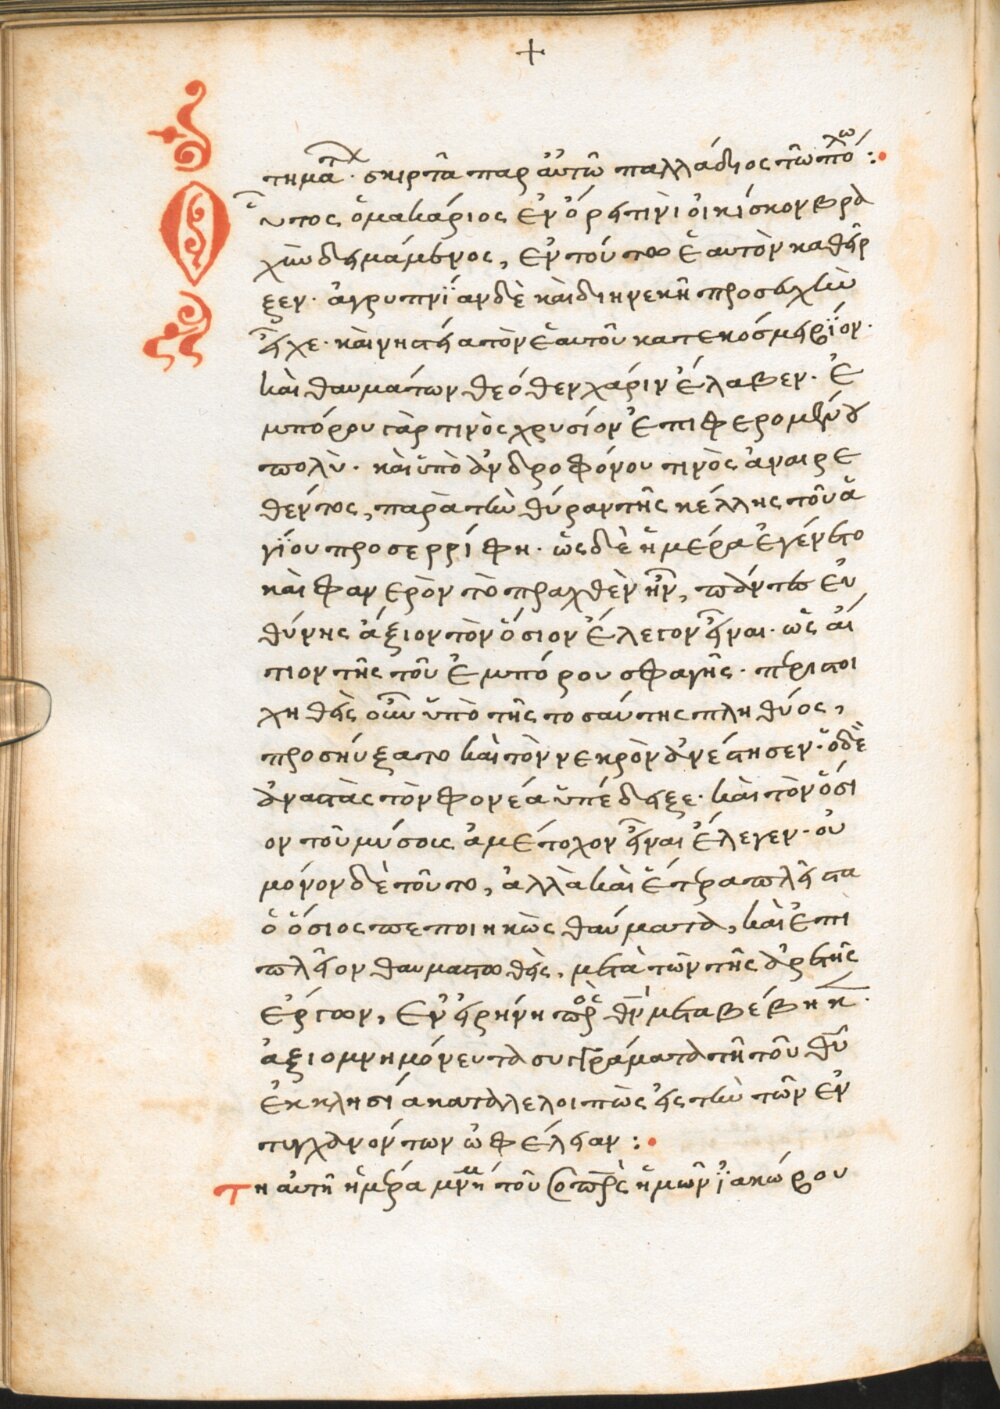 +
τημα. σκιρτᾶ παρ αὐτῶ παλλάδιος τῶ πόλω :·
Οὗτος ὁ μακάριος ἐν ὄρει τινὶ οἰκίσκον βρα
χὺν δειμάμενος, ἐν τούτω ἑαυτὸν καθεῖρ
ξεν· ἀγρυπνίαν δὲ καὶ διηνεκῆ προσευχὴν
εἶχε· καὶ νηστεία τὸν ἑαυτοῦ κατεκόσμει βίον·
καὶ θαυμάτων θεόθεν χάριν ἔλαβεν· ἐ
μπόρου γάρ τινὸς χρυσίον ἐπιφερομένου
πολὺ· καὶ ὑπὸ ἀνδροφόνου τινὸς ἀναιρε
θέντος, παρὰ τὴν θύραν τῆς κέλλης τοῦ ἁ
γίου προσερρίφη· ὡς δὲ ἡμέρα ἐγένετο
καὶ φανερὸν τὸ πραχθὲν ἦν, πάντες εὐ
θύνης ἄξιον τὸν ὅσιον ἔλεγον εἶναι· ὡς αἴ
τιον τῆς τοῦ ἐμπόρου σφαγῆς· περιστοι
χηθεὶς οὖν ὑπὸ τῆς τοσαύτης πληθύος,
προσηύξατο καὶ τὸν νεκρὸν ἀνέστησεν· ὁ δὲ
ἀναστὰς τὸν φονέα ὑπέδειξε· καὶ τὸν ὅσι
ον τοῦ μύσους ἀμέτοχον εἶναι ἔλεγεν· οὐ
μόνον δὲ τοῦτο, ἀλλὰ καὶ ἕτερα πλεῖστα
ὁ ὅσιος πεποιηκὼς θαύματα, καὶ ἐπὶ
πλεῖον θαυμαστωθεὶς, μετὰ τῶν τῆς ἀρετῆς
ἔργων, ἐν εἰρήνη πρὸς θν μεταβέβηκ·
ἀξιομνημόνευτα συγγράματα τῆ τοῦ θυ
ἐκκλησία καταλελοιπὼς εἰς τὴν τῶν ἐν
τυγχανόντων ὠφέλειαν :·
Τη αὐτῆ ἡμέρα μνήμη τοῦ ὁσ πρς ἡμῶν ἰακώβου